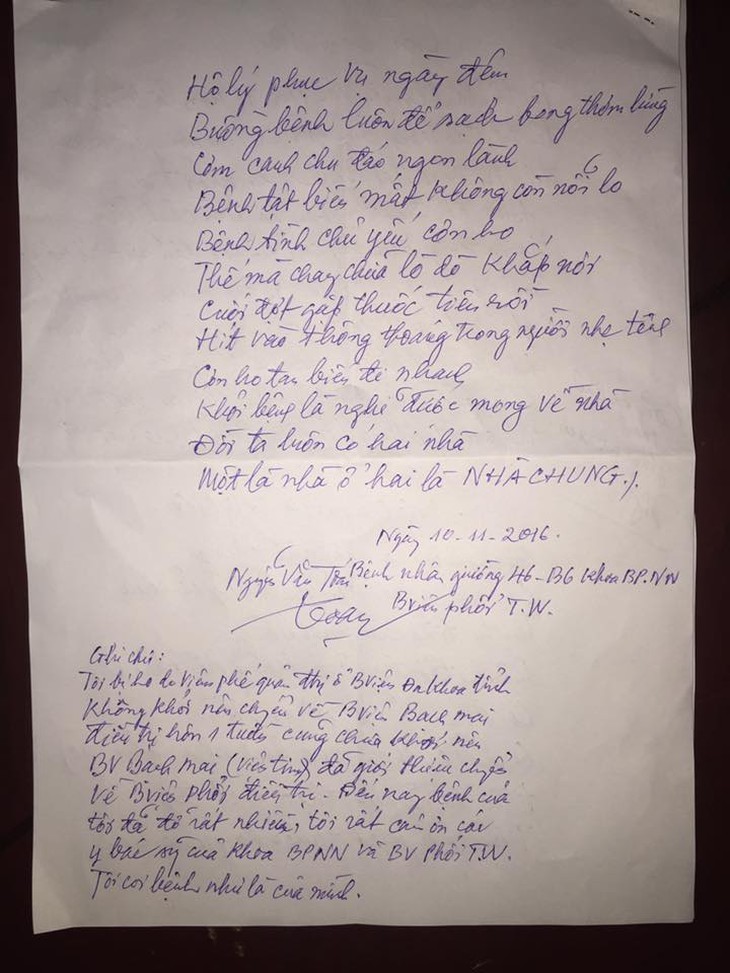 Hộ lý phục vụ ngày đêm
Buồng bệnh luôn để sạch bong thơm lừng
Cơm canh chu đáo ngon lành
Bệnh tật biến mất không còn nỗi lo
Bệnh tình chủ yếu cơn ho
Thế mà chạy chữa lò dò khắp nơi
Cuối đợt gặp thuốc tiên rồi
Hít vào thông thoáng trong người nhẹ tênh
Cơn ho tan biến đi nhanh
Khỏi bệnh là nghĩ được mong về nhà
Đời ta luôn có hai nhà
Một là nhà ở hai là NHÀ CHUNG./.
Ngày 10-11-2016.
Nguyễn Văn Toán Bệnh nhân giường 46-B6 khoa BP.NN
Toán Bviện phổi T.W.
Ghi chú:
Tôi bị ho do viêm phế quản thị ở Bviện Đa khoa tỉnh
không khỏi nên chuyển về Bviện Bạch mai
điều trị hơn 1 tuần cũng chưa khỏi nên
BV Bạch mai (Viện tim) đã giới thiệu chuyển
về Bviện phổi điều trị - Đến nay bệnh của
tôi đã đỡ rất nhiều, tôi rất cảm ơn các
y bác sỹ của khoa BPNN và BV phổi T.W.
Tôi coi bệnh như là của mình.